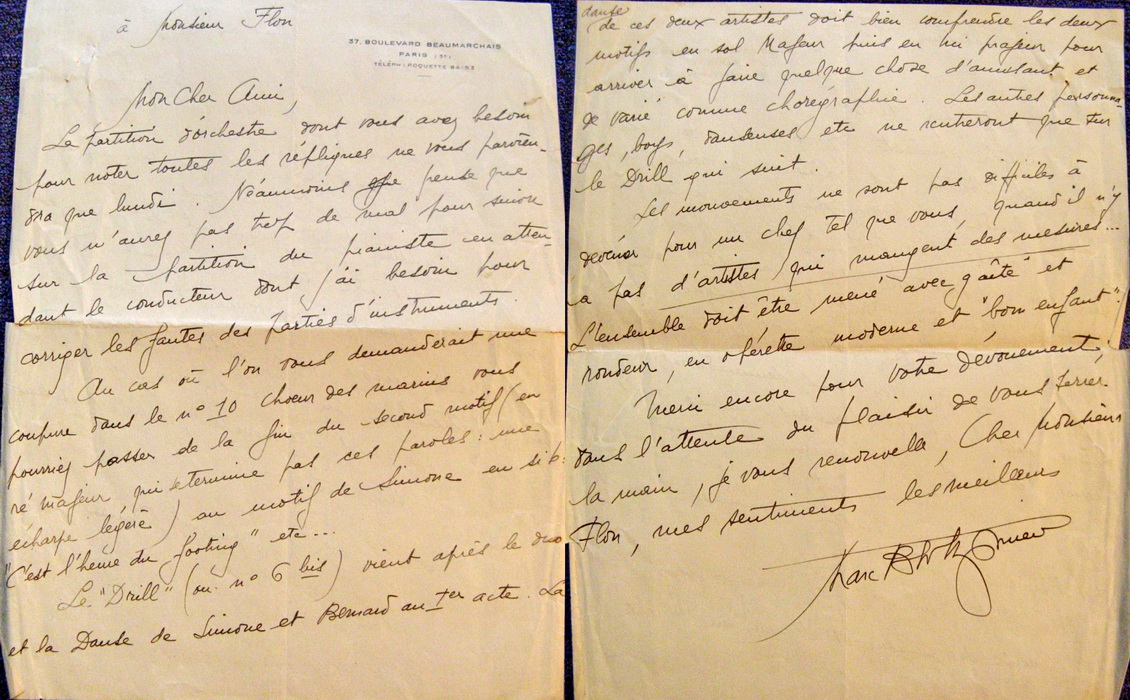 à Monsieur Flon
37, BOULEVARD BEAUMARCHAIS
PARIS (3e)
TÉLÉPH : ROQUETTE
Mon Cher Ami,
La partition d'orchestre dont vous avez besoin
pour noter toutes les répliques ne vous parvien-
dra que lundi. Néanmoins je pense que
vous n'aurez pas trop de mal pour suivre
sur la partition du pianiste en atten-
dant le conducteur dont j'ai besoin pour
corriger les fautes des parties d'instruments.
Au cas où l'on vous demanderait une
coupure dans le n° 10 Choeur des marins vous
pourriez passer de la fin du second motif (en
ré majeur qui se termine pas ces paroles : une
écharpe légère) au motif de Simone en si b :
"C'est l'heure du footing" etc ...
Le "Drill" (ou n° 6 bis) vient après le duo
et la Danse de Simone et Bernard au 1er acte. La
danse
de ces deux artistes doit bien comprendre les deux
motifs en sol Majeur puis en mi majeur pour
arriver à faire quelque chose d'amusant et
de varié comme chorégraphie. Les autres personna-
ges, boys, danseuses etc ne rentreront que sur
le Drill qui suit.
Les mouvements ne sont pas difficiles à
deviner pour un chef tel que vous, quand il n'y
a pas d'artistes qui mangent des mesures...
L'ensemble doit être mené "avec gaîté" et
rondeur, en opérette moderne et "bon enfant".
Merci encore pour votre dévouement,
dans l'attente du plaisir de vous serrer
la main, je vous renouvelle, Cher Monsieur
Flon, mes sentiments les meilleurs
Marc